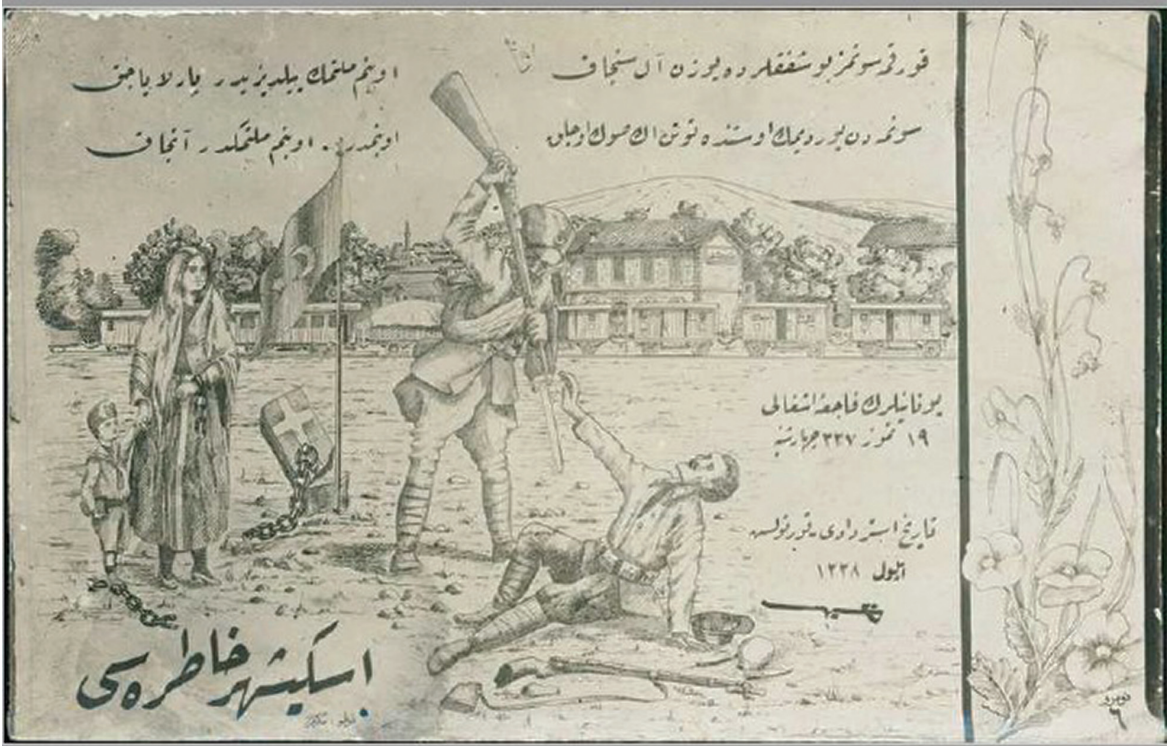 قورقمه سونمز بو شفقلرده یوزن آل سنجاق
سونمه دن یوردیمك اوستنده توتن اك صوك اوجاق
او بنم ملتمك ییلدیزیدر پارلایاجق
او بنمدر .. او بنم ملتمكدر آنجاق
یونانیلرك فاجعهٔ اشغالی
١٩ تموز ٣٣٧ چهارشنبه
تاریخ استردادی
ایلول ١٣٣٨
اسكیشهر خاطره سی
نومرو
٦